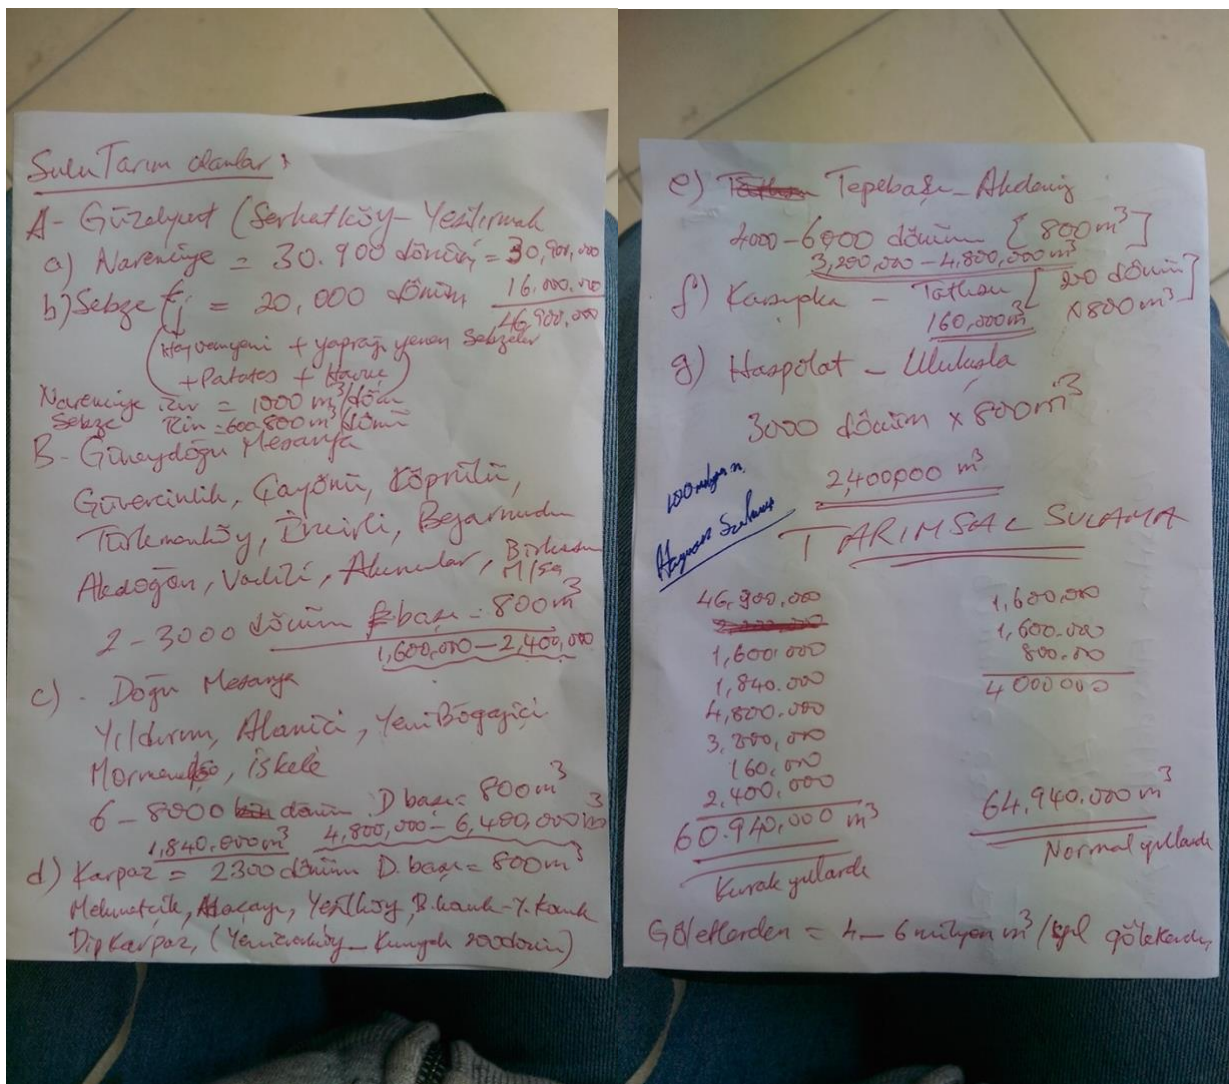 Sulu Tarım alanları
A- Güzelyurt (Serhatköy - Yeşilırmak
a) Narenciye = 30.900 dönüm = 30,900,000
b) Sebze = 20,000 dönüm 16.000.000
46,900,000
(Hayvanyemi + yaprağı yenen sebzeler
+ Patates + Havuç)
Narenciye için = 1000 m³/dönüm
Sebze için = 600-800 m³/dönüm
B- Güneydoğu Mesarya
Güvercinlik, Çayönü, Köprülü,
Türkmenköy, İncirli, Beyarmudu
Akdoğan, Vadili, Akıncılar,
2-3000 dönüm başı = 800m³
1,600,000 - 2,400,000
c) - Doğu Mesarya
Yıldırım, Alaniçi, Yeni Boğaziçi
Mormenekşe, iskele
6-8000 dönüm D başı = 800m³
1,840,000m³ 4,800,000 - 6,400,000m³
d) Karpaz = 2300 dönüm D. başı = 800m³
Mehmetçik, Yeşilköy,
Dipkarpaz, (Yenierenköy -
e) Tepebaşı - Akdeniz
4000-6000 dönüm [800m³]
3,200,000 - 4,800,000m³
f) Karpaşa - Tatlısu [200 dönüm
160,000m³ x800m³]
g) Haspolat - Ulukışla
3000 dönüm x 800m³
2,400,000 m³
Hayvan Sulama
TARIMSAL SULAMA
46,900,000 1,600,000
1,600.000 1,600.000
1,840.000 800.000
4,800.000 4000000
3,200,000
160,000
2,400,000 64,940,000 m³
60.940,000 m³ Normal yıllarda
Kurak yıllarda
Göletlerden = 4-6 milyon m³/yıl